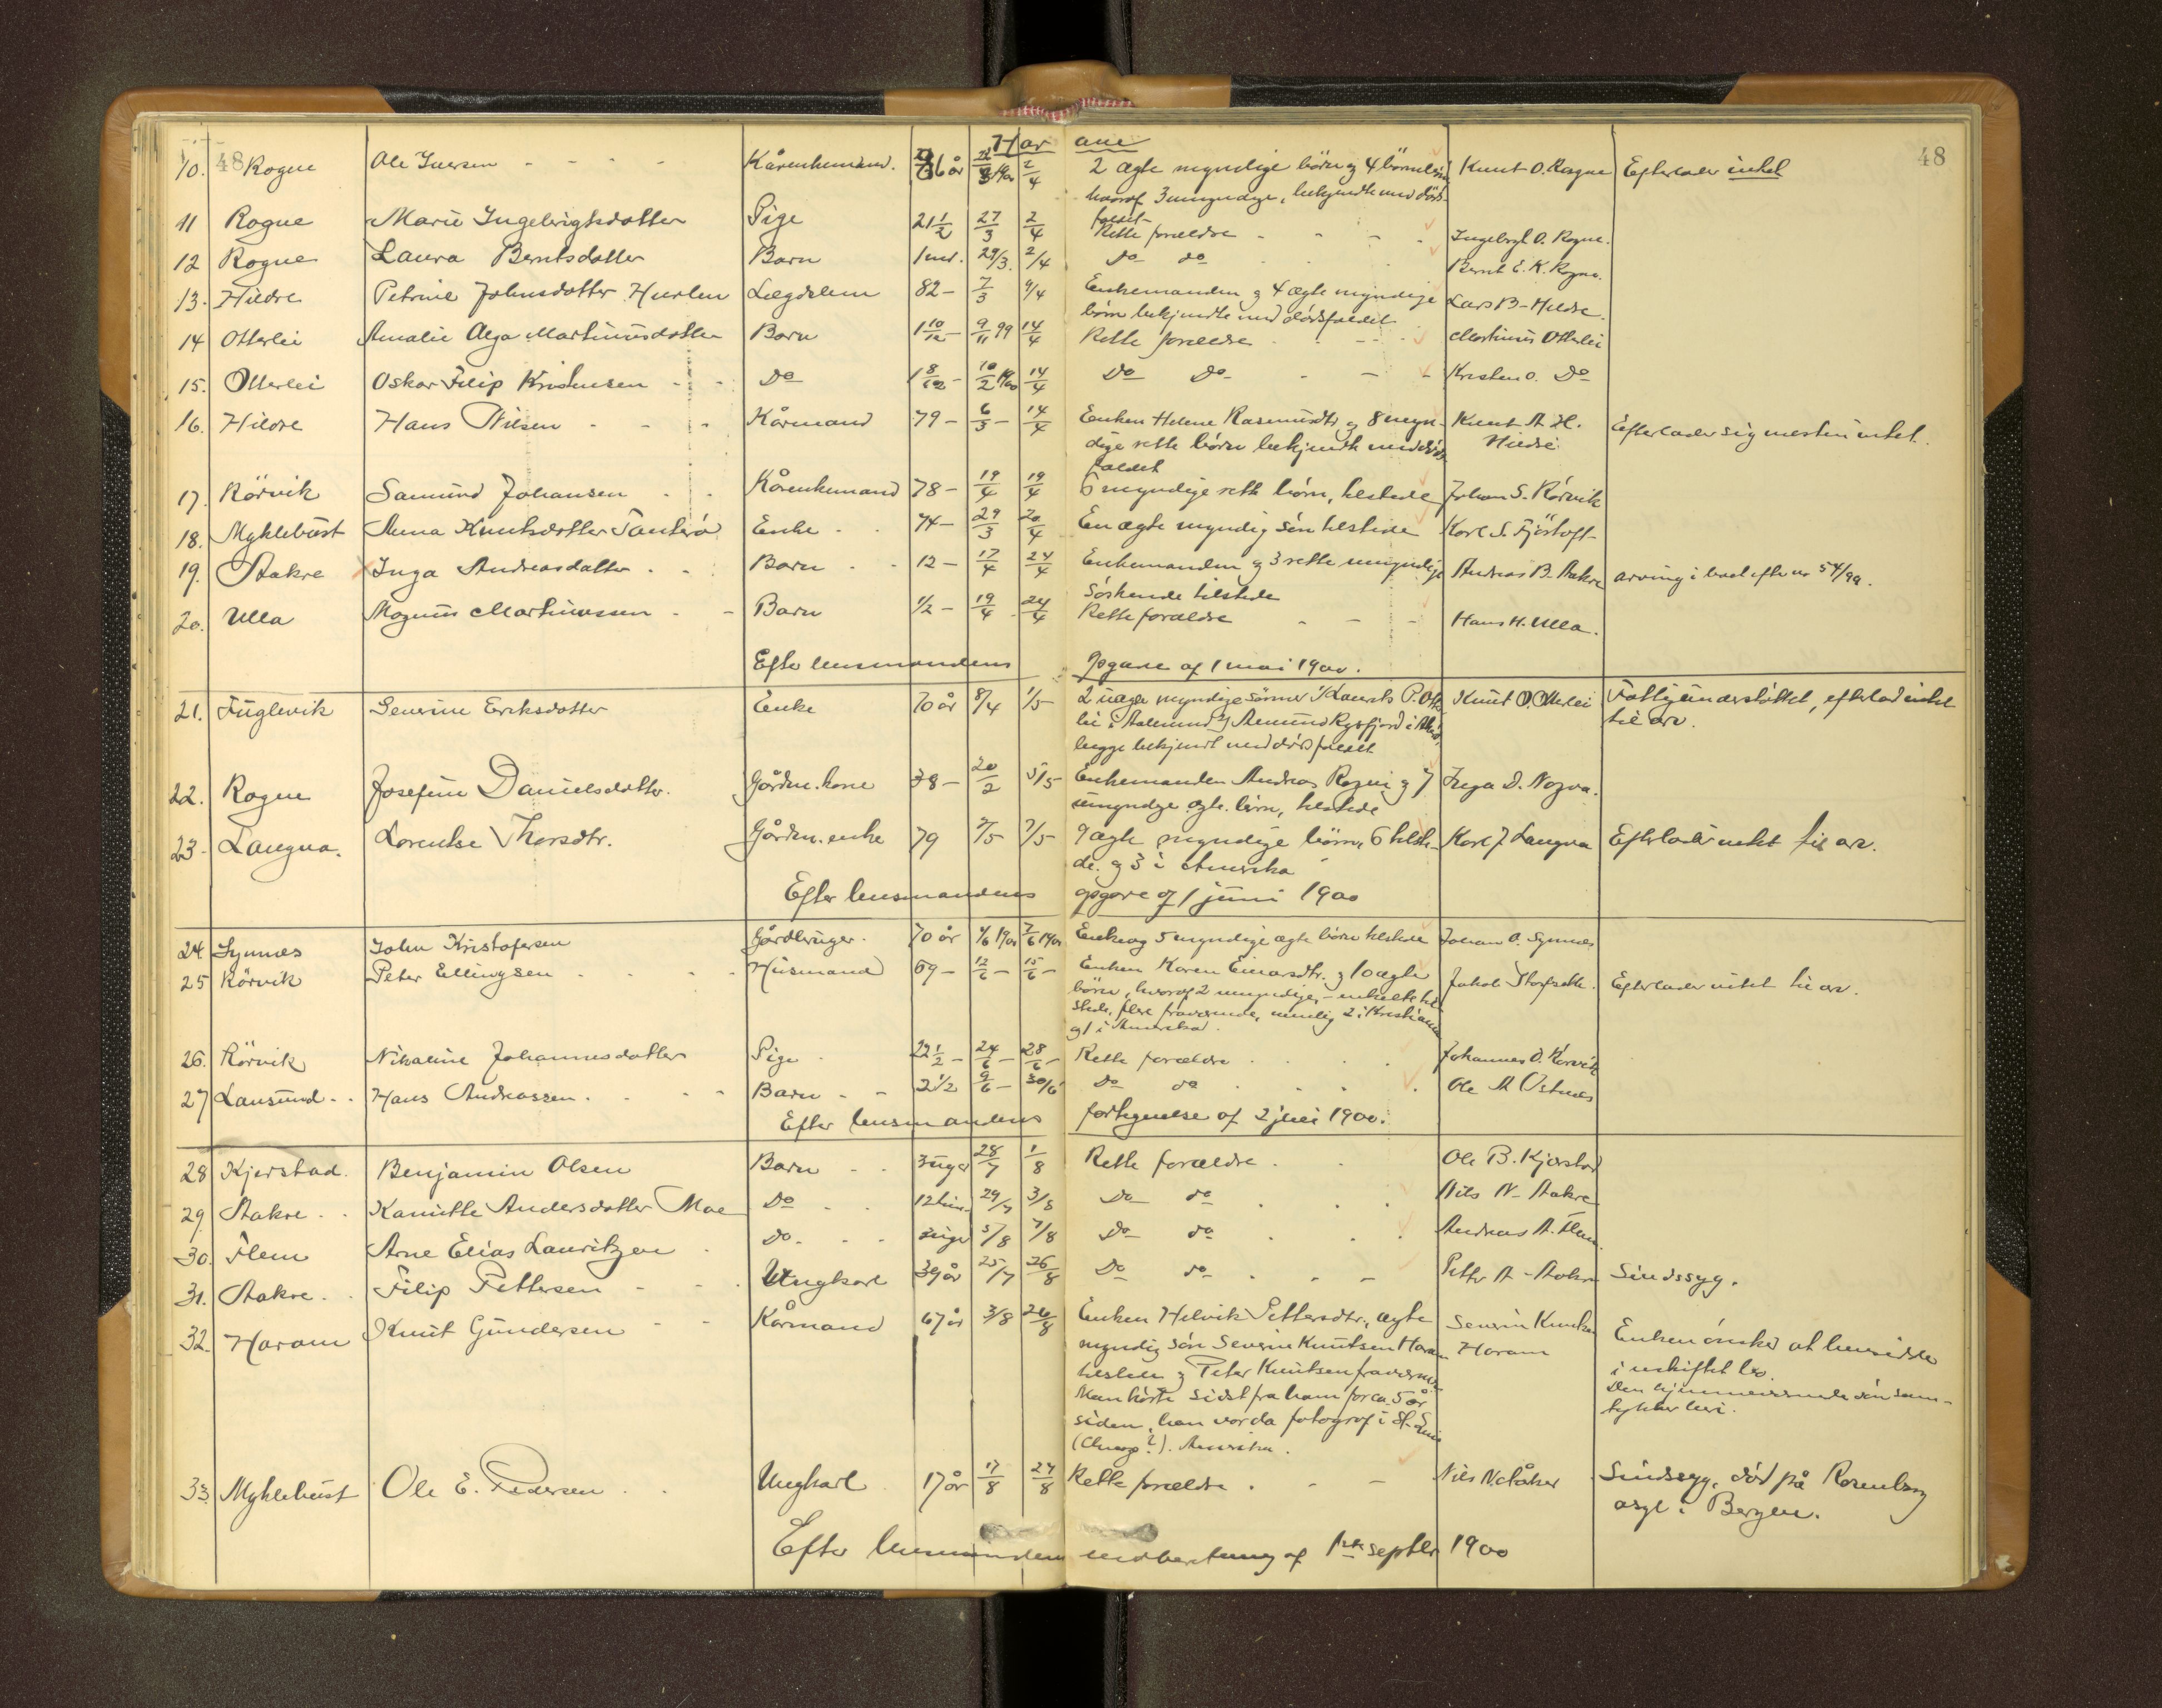 48 Har ane 48
10. Rogne Ole Iversen - - - - Kårenkemand. 76 år 22/3 1900 2/4 2 ægte myndige börn og 4 börnebörn Knut O. Rogne Efterlader intet
hvoraf 3 umyndige, bekjendte med döds-
faldet
11 Rogne Marie Ingebrigtsdatter Pige 21 1/2 27/3 2/4 Rette forældre - - - - Ingebrgt O. Rogne.
12 Rogne Laura Berntsdatter Barn 1 md. 29/3. 2/4 Do do Bernt E. K. Rogne.
13. Hildre Petrine Johnsdatter Hurlen Lægdslem 82 - 7/3 9/4 Enkemanden og 4 ægte myndige Lars B. Hildre.
börn bekjendte med dödsfaldet
14 Otterlei Amalie Olga Martinusdatter Barn 1 10/12 - 9/11 99 14/4 Rette forældre - - - Martinus Otterlei
15. Otterlei Oskar Filip Kristensen - - Do 1 8/12 - 10/2 1900 14/4 Do Do - - - Kristen O. Do
16. Hildre Hans Nilsen - - - Kårmand 79 - 6/3 - 14/4 Enken Helene Rasmusdtr og 8 myn- Knut A. H. Efterlader sig mesten intet.
dige rette börn bekjendt med döds- Hildre
faldet
17. Rörvik Samund Johansen - - Kårenkemand 78 - 19/4 19/4 6 myndige rette börn, tilstede Johan S. Rörvik
18. Myklebust Anna Knutsdatter Enke - - 74 - 29/3 20/4 En ægte myndig sön tilstede Karl S. Fjörtoft
19. Aakre Inga Andreasdatter - - Barn - - 12 - 17/4 24/4 Enkemanden og 3 rette umyndige Andreas B. Aakre arving i boet efter no 54/99.
söskende tilstede
20. Ulla Magnus Martinussen - - Barn 1/2 - 19/4 - 24/4 Rette forældre - - - Hans H. Ulla.
Efter lensmandens opgave af 1 mai 1900.
21. Fuglevik Severine Eriksdatter Enke 70 år 8/4 1/5 - 2 uægte myndige sönner Laurits P. Otter- Knut O. Otterlei Fattigunderstöttet, efterlod intet
lei i Aalesund og til arv.
begge bekjendt med dödsfaldet
22. Rogne Josefine Danielsdatter. Gårdm. kone 38 - 20/2 5/5 Enkemanden Andreas Rogne og 7
umyndige ægte börn, tilstede
23. Langva. Lorentse Thorsdtr. Gårdm. enke 79 2/5 7/5 9 ægte myndige börn, 6 tilste- Karl J. Langva Efterlader intet til arv.
de. og 3 i Amerika
Efter lensmandens opgave af 1 juni 1900
24. Synnes John Kristofersen Gårdbruger. 70 år 4/6 1900 7/6 1900 Enke og 5 myndige ægte börn tilstede Johan O. Synnes
25 Rörvik Peter Ellingsen - - - - Husmand 69 - 12/6 - 15/6 - Enken Karen Einarsdtr. og 10 ægte Jakob Efterlader intet til arv.
börn, hvoraf 2 umyndige, - enkelte til-
stede, flere fraværende, nemlig 2 i Kristiania
og 1 i Amerika.
26. Rörvik Nikoline Johannesdatter Pige - 22 1/2 - 24/6 - 28/6 - Rette forældre - - - Johannes O. Rörvik
27 Lausund - - Hans Andreassen - - - - Barn - - 2 1/2 9/6 - 30/6 Do do - - - - Ole A. Ostnes
Efter lensmandens fortegnelse af 2 juli 1900.
28 Kjerstad. Benjamin Olsen Barn - - 3 uger 28/7 1/8 Rette forældre - - Ole B. Kjerstad
29. Aakre - - Kanutte Andersdatter Moe Do - - 12 tim. 29/7 3/8 Do do - - - Nils N. Aakre
30. Flem Arne Elias Lauritzen - Do - - - uger 5/8 7/8 Do do - - - Andreas A. Flem.
31. Aakre - - Filip Pettersen - - - Ungkarl 39 år 25/7 26/8 Do do - - - Petter A. Aakre Sindssyg.
32. Haram Knut Gundersen - - Kårmand 67 år 3/8 26/8 Enken Helvik Pettersdtr, ægte Severin Knutsen Enken önsker at hensidde
myndig sön Severin Knutsen Haram Haram i uskiftet bo.
tilstede og Peter Knutsen fraværende. Den hjemmeværende sön sam-
Man hörte sidst fra ham for ca. 5 år tykker heri.
siden, han var da fotograf i St. Luis
(Chicago?). Amerika.
33. Myklebust Ole E. Pedersen - - Ungkarl 17 år 17/8 27/8 Rette forældre - - - Nils N. Aakre Sindssyg, död på Rosenberg
asyl i Bergen.
Efter lensmandens indberetning af 1ste septbr 1900